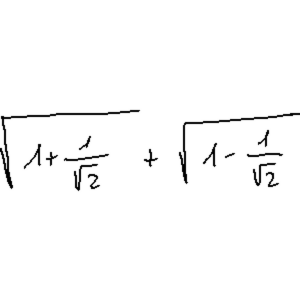 √(1+1/√2) + √(1-1/√2)